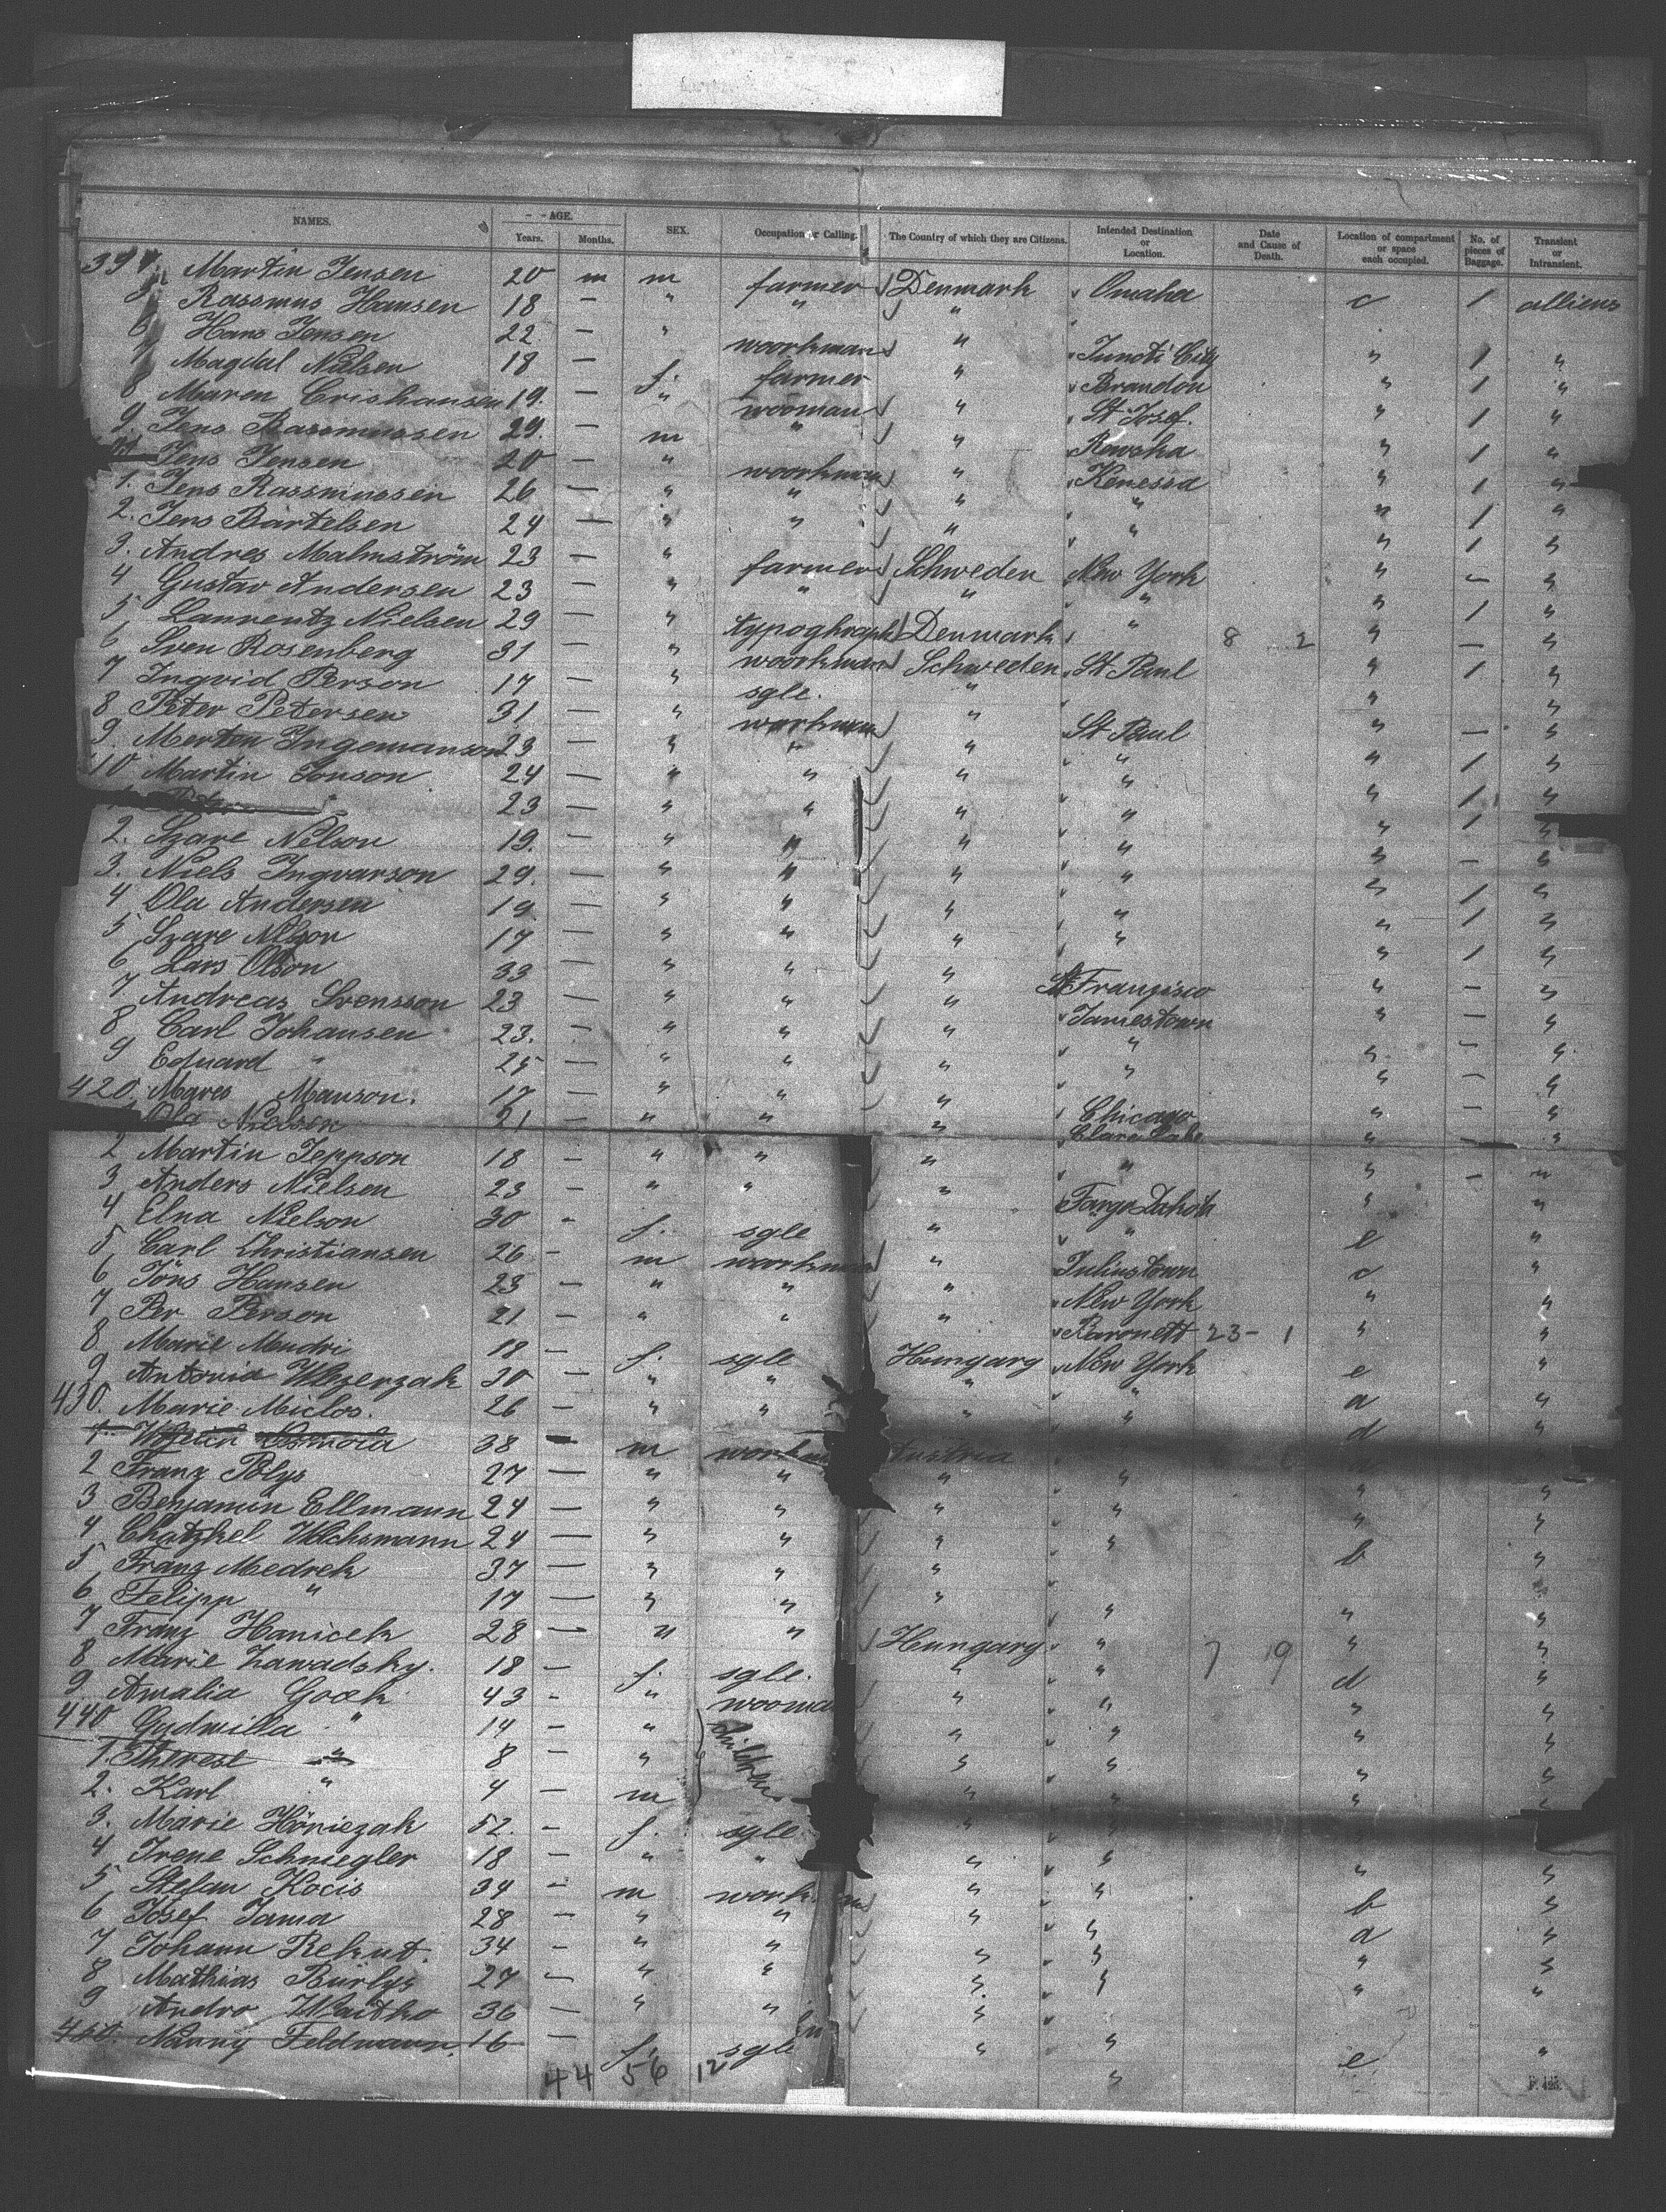 NAMES. AGE. Years. Months. SEX. Occupation or Calling. The Country of which they are Citizens. Intended Destination or Location. Date and Cause of Death. Location of compartment or space each occupied. No. of pieces of Baggage. Transient or Intransient.
Martin Jensen 20 m m farmer Denmark Omaha c 1 alliens
Rassmus Hansen 18 — " " "
6 Hans Jensen 22 — " woorkman " Juncti City " 1 "
7 Magdal Nielsen 18 — f. farmer " Brandon " 1 "
8 Maren Crishansen 19. — " wooman " St Josef. " 1 "
9. Jens Rassmussen 29. — m " " " 1 "
Jens Jensen 20 — " woorkman " Kenessa " 1 "
1. Jens Rassmussen 26 — " " " " " 1 "
2. Jens Bartelsen 24 — " " " " " 1 "
3. Andres Malmström 23 — " farmer Schweden New York " — "
4 Gustav Andersen 23 — " " " " " 1 "
5 Laurentz Nielsen 29 — " typoghraph Denmark " 8 2 " — "
6 Sven Rosenberg 31 — " woorkman Schweden St Paul " 1 "
7 Ingvid Person 17 — " sgle. " " "
8 Peter Petersen 31 — " workman " St Paul " — "
9. Merten Ingemanson 23 — " " " " " 1 "
10 Martin Jonson 24 — " " " " " 1 "
23 — " " " " " 1 "
2. Nelson 19. — " " " " " — "
3. Niels Ingvarson 29. — " " " " " 1 "
4 Ola Andersen 19 — " " " " " 1 "
5 Nelson 17 — " " " " " 1 "
6 Lars Olson 33 — " " " St Franzisco " — "
7. Andreas Svensson 23 — " " " Jamestown " — "
8 Carl Johansen 23. — " " " " " — "
9 Eduard " 25 — " " " " " — "
420. Mares Manson. 17 — " " " Chicago " — "
Ola Nielsen 21 — " " " Clare Lake " — "
2 Martin Jeppson 18 — " " " " " — "
3 Anders Nielsen 23 — " " " Fargo Dakota " "
4 Elna Nielson 30 - f. sgle " " e "
5 Carl Christiansen 26 - m workman " Juliustown c "
6 Jöns Hansen 23 — " " " New York " "
7 Per Person 21 — " " " Baronett 23- 1 " "
8 Marie Mudri 18 — f. sgle Hungary New York e "
9 Antonia 30 — " " " " a "
430. Marie Miclos. 26 — " " " " d "
1 38 — m workman Austria
2 Franz Polys 27 — " " " " " "
3 Benjamin Ellmann 24 — " " " " " "
4 Chatzkel Wachsmann 24 — " " " " b "
5 Franz Medrek 37 — " " "
6 Felipp " 17 — " " " " " "
7 Franz Hanicek 28 — " " Hungary " 7 19 " "
8 Marie Zawadsky. 18 — f. sgle. " " d "
9 Amalia Goek 43 - " wooman " " " "
440 Gudmilla " 14 - " children " " " "
1. Therese " 8 - " " " " "
2. Karl " 4 — m " " " "
3. Marie Höniezak 52. — f. sgle. " "
4 Irene Schniegler 18 - " " " " " "
5 Stefan Kocis 34 - m work. m " " b "
6 Josef Jama 28 — " " " " a "
7 Johann Rekut. 34 - " " " " " "
8 Mathias Burlys 27 — " " " " " "
9 Andro Waitko 36 — " " "
Nanny Feldmann. 16 — f. sgle " " e "
44 56 12 "